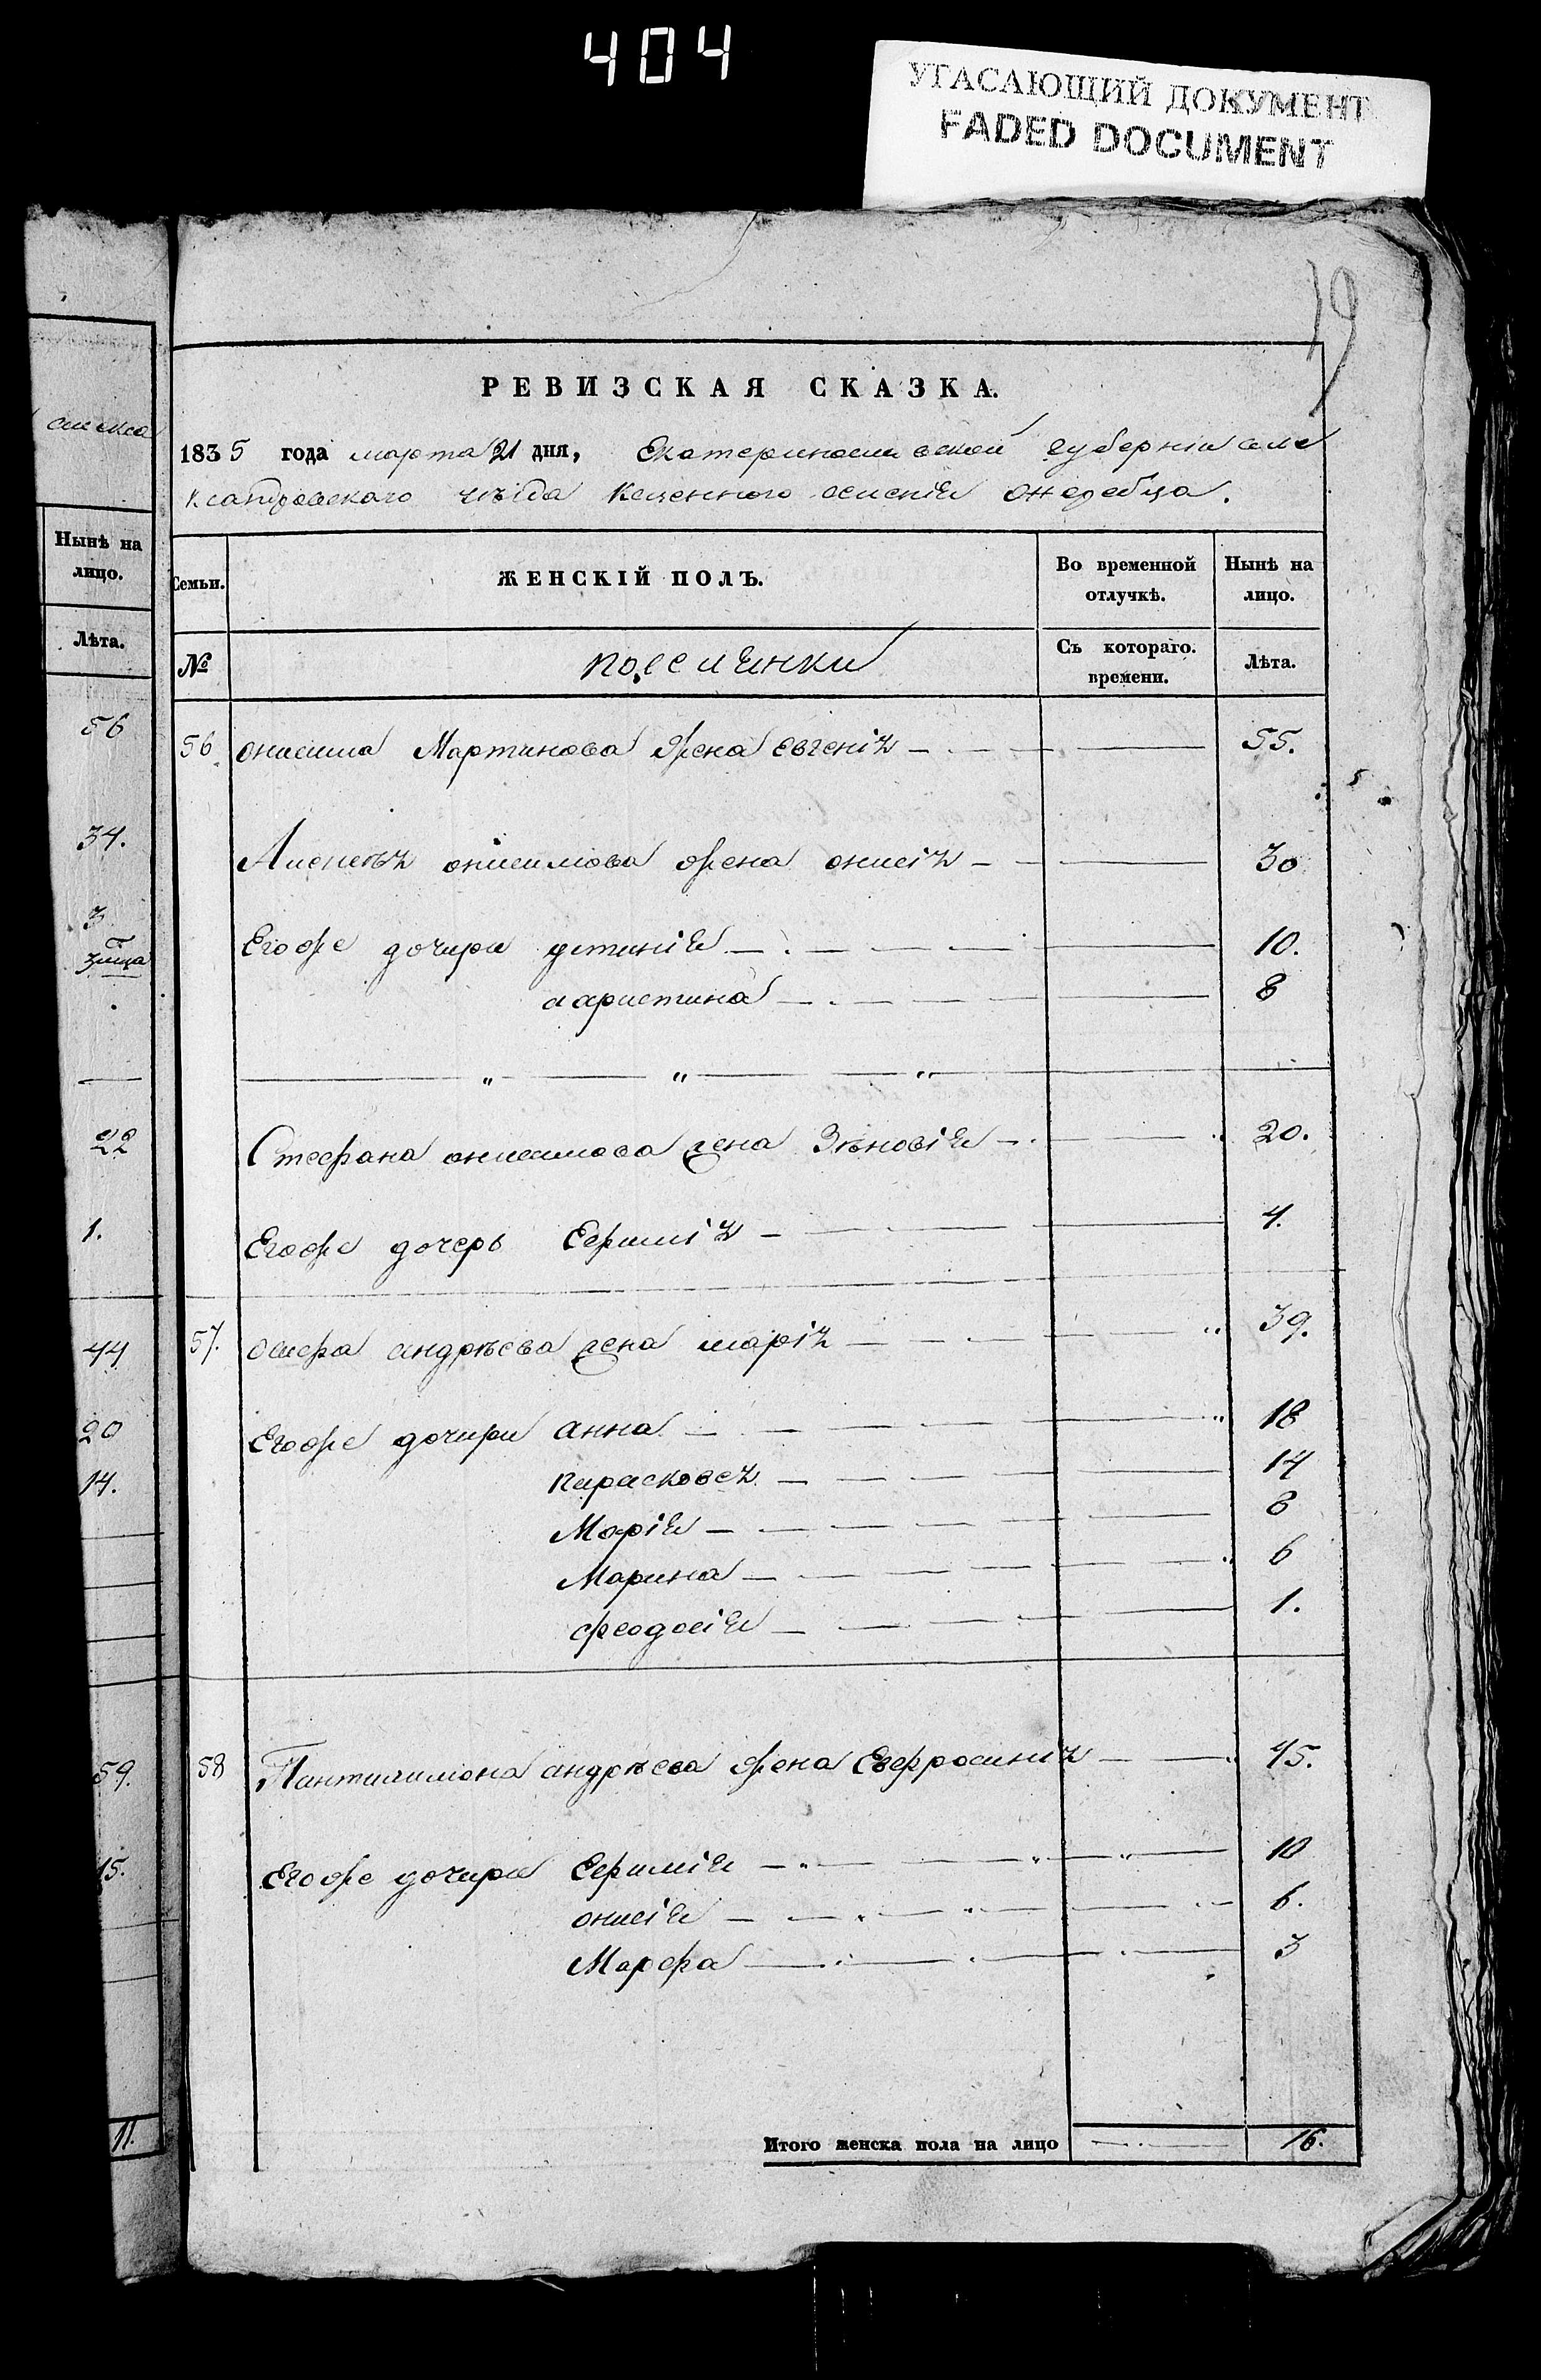 404
УГАСАЮЩИЙ ДОКУМЕНТ
FADED DOCUMENT
19
РЕВИЗСКАЯ СКАЗКА.
1835 года марта 21 дня, Екатеринославской губерніи але
ксандровскаго уѣзда казенного селенія
Нынѣ на лицо.
Лѣта.
56
34.
3
22
1.
44
20
14.
59.
15.
11.
Семьи.
ЖЕНСКІЙ ПОЛЪ.
Во временной отлучкѣ.
Нынѣ на лицо.
№
поселянки
Съ котораго. времени.
Лѣта.
56 онисима Мартинова жена евгенія 55.
онисимова жена онисія 30
Егоже дочири устинія 10.
христина 8
Стефана онисимова жена Зѣновія 20.
Егоже дочерь Ефимія 4.
57. андрѣева жена марія 39.
Егоже дочири анна 18
парасковея 14
Марія 8
Марина 6
феодосія 1.
58 Пантилимона андрѣева жена Евфросинія 45.
Егоже дочири Ефимія 10
онисія 6.
Марфа 3
Итого женска пола на лицо 16.